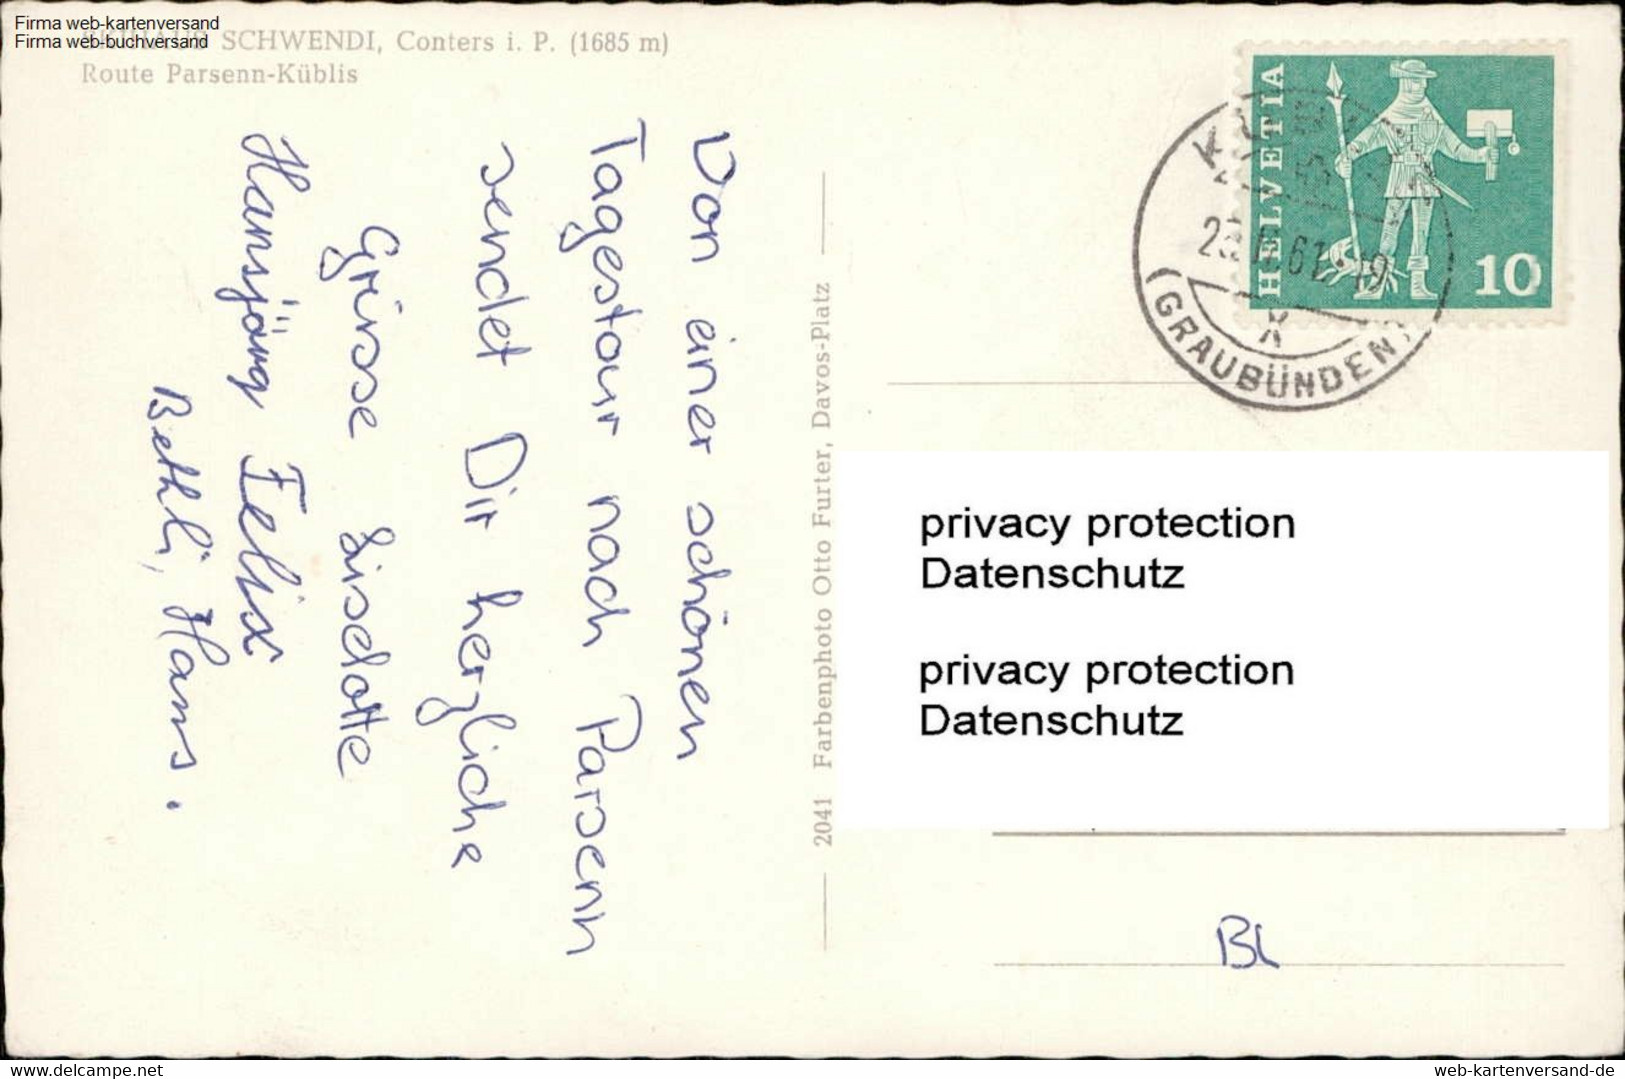 Firma web-kartenversand
Firma web-buchversand
SKIHAUS SCHWENDI, Conters i. P. (1685 m)
Route Parsenn-Küblis
Von einer schönen
Tagestour nach Parsenn
sendet Dir herzliche
Grüsse Liselotte
Hansjörg Felix
Bethli, Hans.
2041 Farbenphoto Otto Furter, Davos-Platz
HELVETIA
10
61.-19
X
(GRAUBÜNDEN)
privacy protection
Datenschutz
privacy protection
Datenschutz
BL
www.delcampe.net
web-kartenversand-de